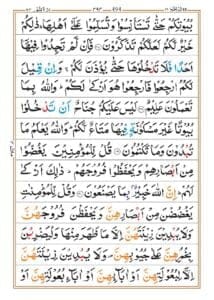 بُيُوْتِكُمْ حَتّٰى تَسْتَاْنِسُوْا وَتُسَلِّمُوْا عَلٰٓى اَهْلِهَا ؕ ذٰلِكُمْ
خَيْرٌ لَّكُمْ لَعَلَّكُمْ تَذَكَّرُوْنَ ۝ فَاِنْ لَّمْ تَجِدُوْا فِيْهَاۤ
اَحَدًا فَلَا تَدْخُلُوْهَا حَتّٰى يُؤْذَنَ لَكُمْ ۚ وَاِنْ قِيْلَ
لَكُمُ ارْجِعُوْا فَارْجِعُوْا هُوَ اَزْكٰى لَكُمْ ؕ وَاللّٰهُ بِمَا
تَعْمَلُوْنَ عَلِيْمٌ ۝ لَيْسَ عَلَيْكُمْ جُنَاحٌ اَنْ تَدْخُلُوْا
بُيُوْتًا غَيْرَ مَسْكُوْنَةٍ فِيْهَا مَتَاعٌ لَّكُمْ ؕ وَاللّٰهُ يَعْلَمُ مَا
تُبْدُوْنَ وَمَا تَكْتُمُوْنَ ۝ قُلْ لِّلْمُؤْمِنِيْنَ يَغُضُّوْا
مِنْ اَبْصَارِهِمْ وَيَحْفَظُوْا فُرُوْجَهُمْ ؕ ذٰلِكَ اَزْكٰى
لَهُمْ ؕ اِنَّ اللّٰهَ خَبِيْرٌۢ بِمَا يَصْنَعُوْنَ ۝ وَقُلْ لِّلْمُؤْمِنٰتِ
يَغْضُضْنَ مِنْ اَبْصَارِهِنَّ وَيَحْفَظْنَ فُرُوْجَهُنَّ
وَلَا يُبْدِيْنَ زِيْنَتَهُنَّ اِلَّا مَا ظَهَرَ مِنْهَا وَلْيَضْرِبْنَ
بِخُمُرِهِنَّ عَلٰى جُيُوْبِهِنَّ وَلَا يُبْدِيْنَ زِيْنَتَهُنَّ
اِلَّا لِبُعُوْلَتِهِنَّ اَوْ اٰبَآئِهِنَّ اَوْ اٰبَآءِ بُعُوْلَتِهِنَّ